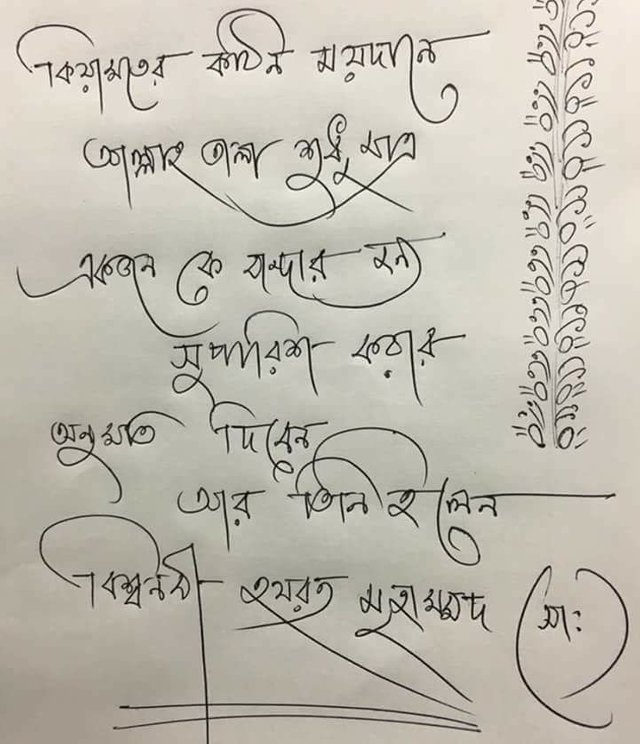 কিয়ামতের কঠিন ময়দানে
আল্লাহ তালা শুধু মাত্র
একজন কে বান্দার জন্য
সুপারিশ করার
অনুমতি দিবেন
আর তিনি হলেন
বিশ্বনবী হযরত মুহাম্মদ (সাঃ)